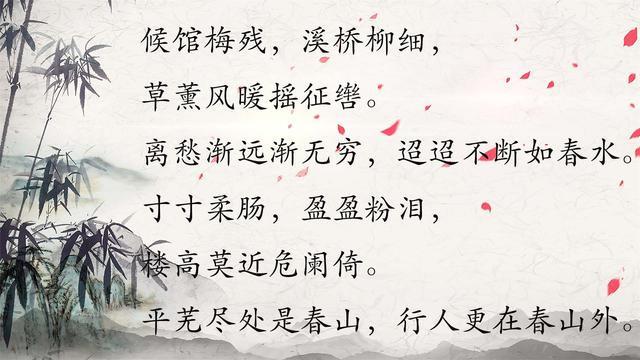 候馆梅残，溪桥柳细，
草薰风暖摇征辔。
离愁渐远渐无穷，迢迢不断如春水。
寸寸柔肠，盈盈粉泪，
楼高莫近危阑倚。
平芜尽处是春山，行人更在春山外。